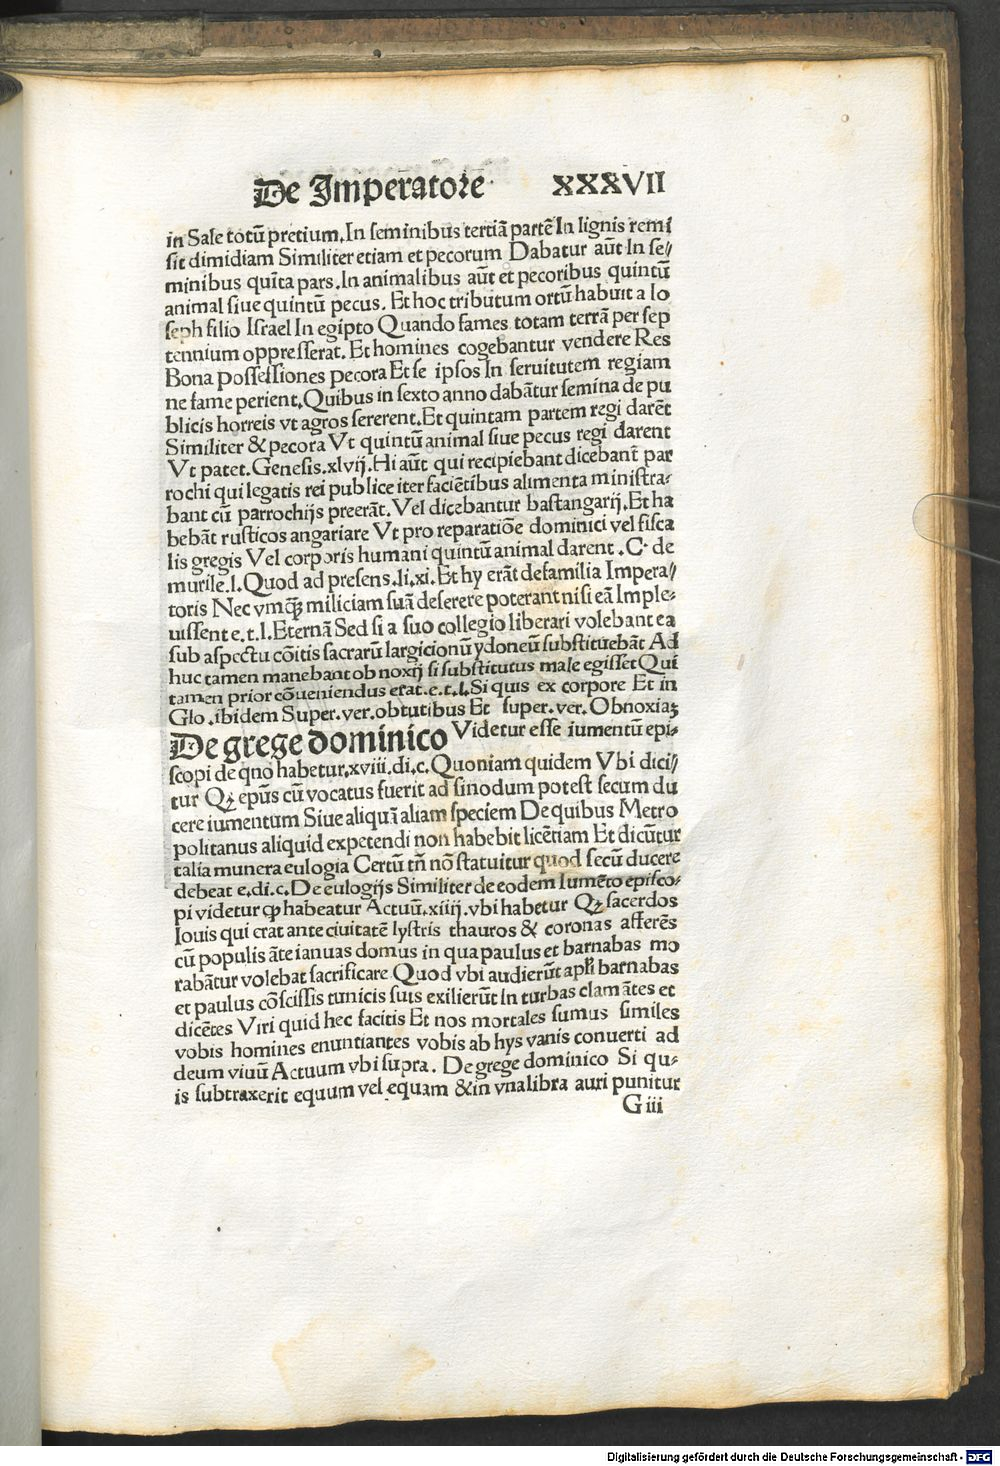 De Imperatore XXXVII
in Sale totū pretium. In seminibus tertiā partē In lignis remi
sit dimidiam Similiter etiam et pecorum Dabatur aūt In se//
minibus quīta pars. In animalibus aūt et pecoribus quintū
animal siue quintū pecus. Et hoc tributum ortū habuit a Io
seph filio Israel In egipto Quando fames totam terrā per sep
tennium oppresserat. Et homines cogebantur vendere Res
Bona possessiones pecora Et se ipsos In seruitutem regiam
ne fame perient. Quibus in sexto anno dabātur semina de pu
blicis horreis vt agros sererent. Et quintam partem regi darēt
Similiter & pecora Vt quintū animal siue pecus regi darent
Vt patet. Genesis. xlvij. Hi aūt qui recipiebant dicebant̄ par
rochi qui legatis rei publice iter faciētibus alimenta ministra-
bant cū parrochijs preerāt. Vel dicebantur bastangarij. Et ha
bebāt rusticos angariare Vt pro reparatiōe dominici vel fisca
lis gregis Vel corporis humani quintū animal darent. C. de
murile. l. Quod ad presens. li. xi. Et hy erāt de familia Impera//
toris Nec vmq̄ꝫ miliciam suā deserere poterant nisi eā Imple-
uissent e. t. l. Eternā Sed si a suo collegio liberari volebant ea
sub aspectu cōitis sacrarū largicionū ydoneū substituebāt Ad
huc tamen manebant ob noxij si substitutus male egisset Qui
tamen prior cōueniendus erat. e. t. l. Si quis ex corpore Et in
Glo. ibidem Super. ver. obtutibus Et super. ver. Obnoxiaꝫ
De grege dominico Videtur esse iumentū epi-
scopi de qno habetur. xviii. di. c. Quoniam quidem Vbi dici//
tur Qꝫ ep̄us cū vocatus fuerit ad sinodum potest secum du
cere iumentum Siue aliquā aliam speciem De quibus Metro
politanus aliquid expetendi non habebit licētiam Et dicūtur
talia munera eulogia Certū tn̄ nō statuitur quod secū ducere
debeat e. di. c. De eulogijs Similiter de eodem Iumēto episco-
pi videtur ꝙ habeatur Actuū. xiiij. vbi habetur Qꝫ sacerdos
Iouis qui erat ante ciuitatē lystris thauros & coronas afferēs
cū populis āte ianuas domus in qua paulus et barnabas mo
rabātur volebat sacrificare Quod vbi audierūt apl̄i barnabas
et paulus cōscissis tunicis suis exilierūt In turbas clamātes et
dicētes Viri quid hec facitis Et nos mortales sumus similes
vobis homines enuntiantes vobis ab hys vanis conuerti ad
deum viuū Actuum vbi supra. De grege dominico Si qu-
is subtraxerit equum vel equam & in vna libra auri punitur
G iii
Digitalisierung gefördert durch die Deutsche Forschungsgemeinschaft - DFG